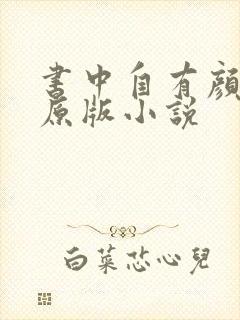 書中自有顏
原版小説
白菜芯心兒